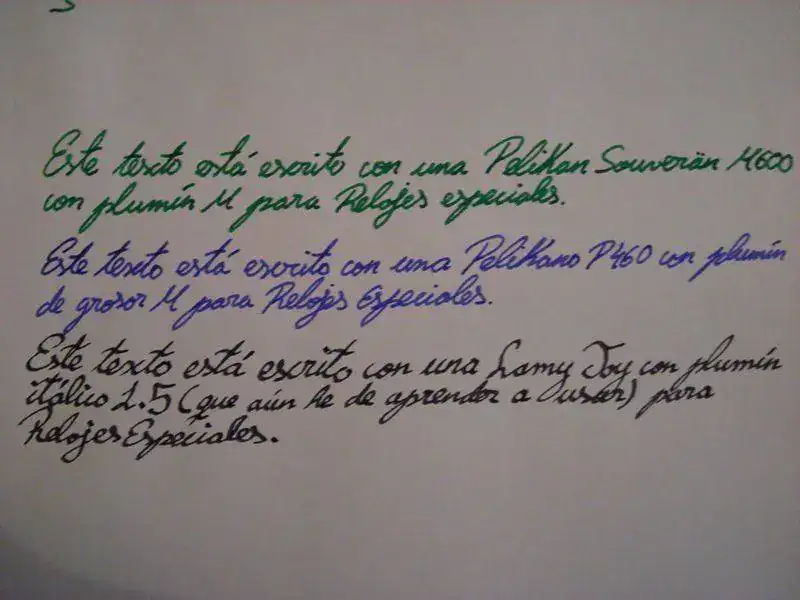 Este texto está escrito con una Pelikan Souverän M600
con plumín M para Relojes especiales.
Este texto está escrito con una Pelikano P460 con plumín
de grosor M para Relojes Especiales.
Este texto está escrito con una Lamy Joy con plumín
itálico 1.5 (que aún he de aprender a usar) para
Relojes Especiales.